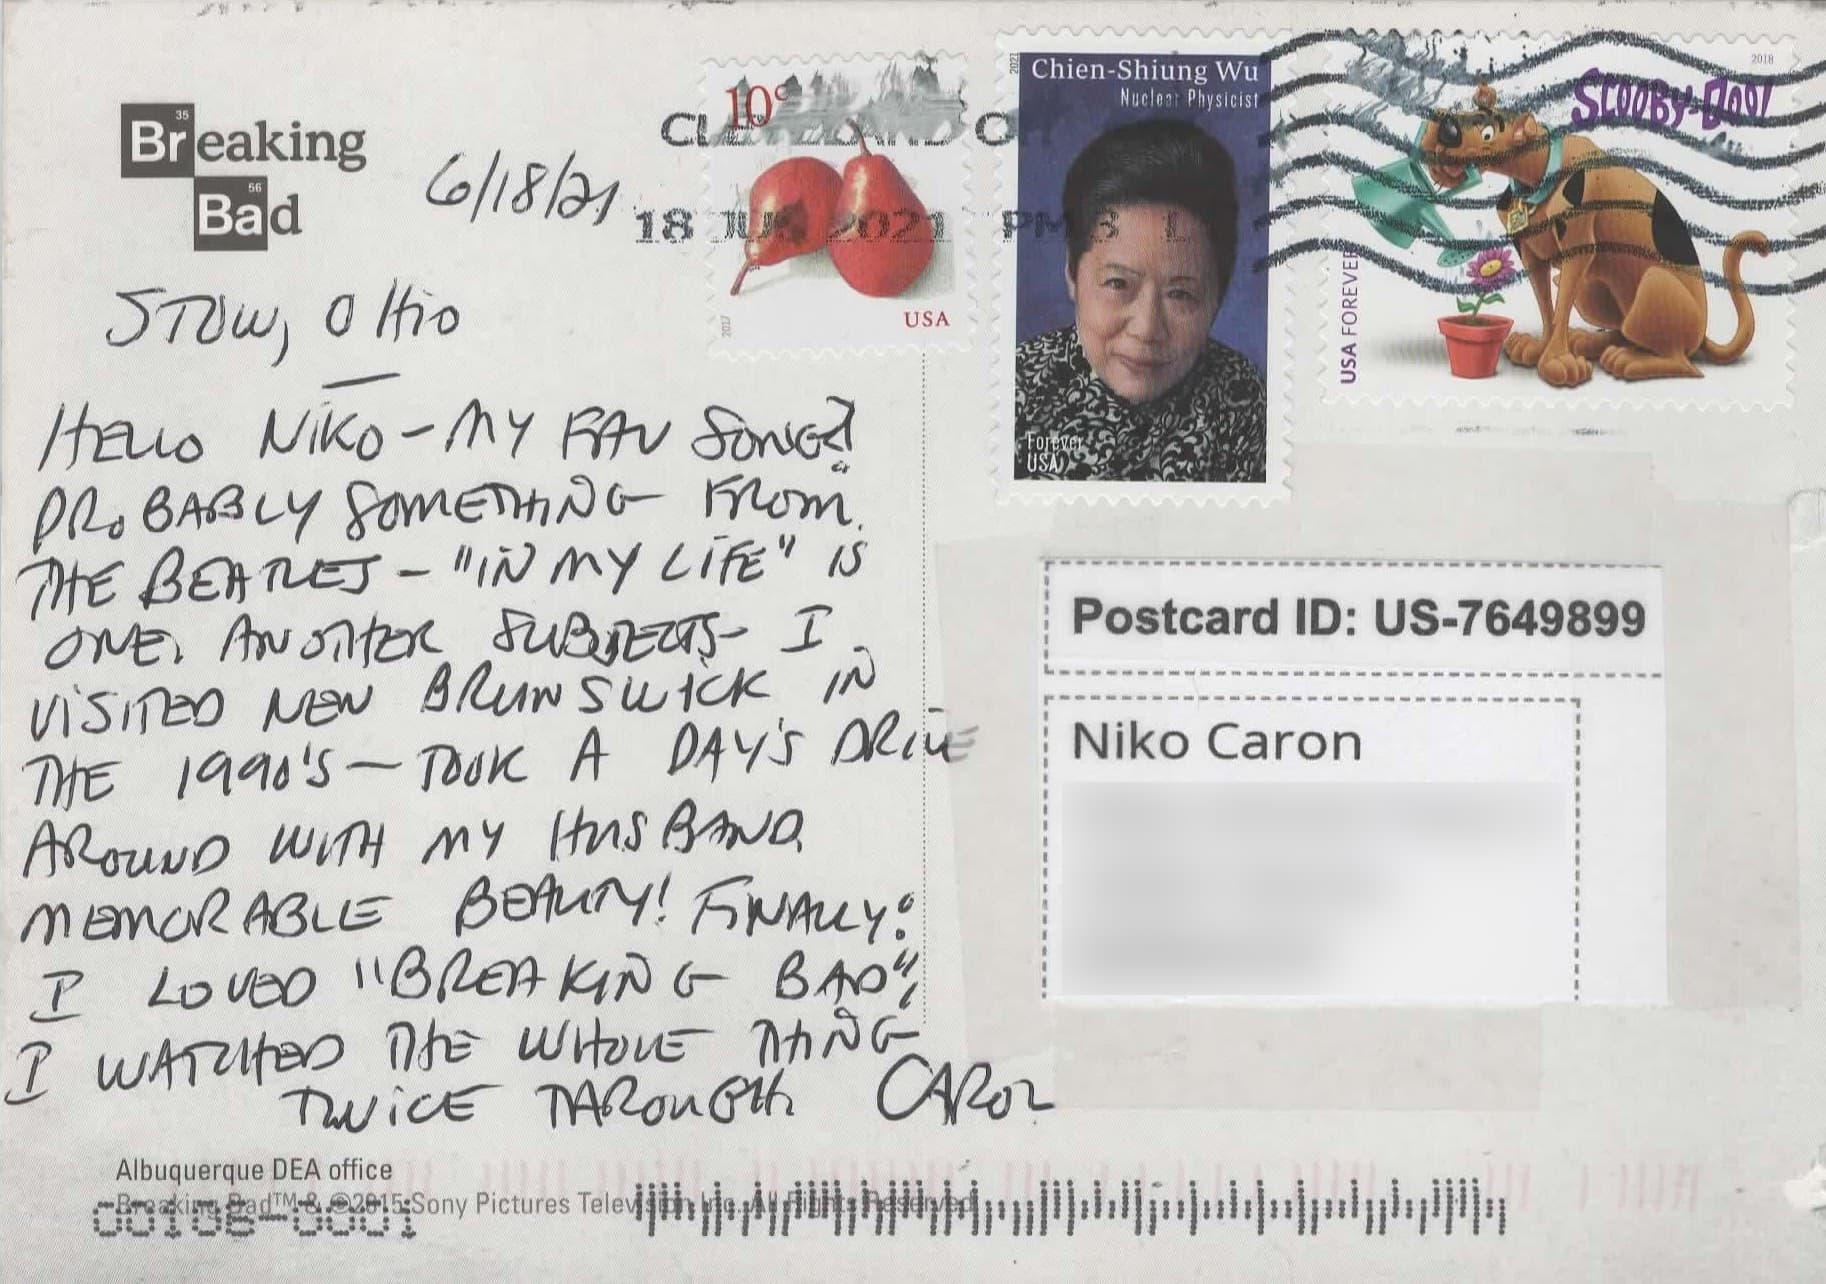 Breaking
Bad
35
56
6/18/21
STOW, OHIO
HELLO NIKO - MY FAV SONG?
PROBABLY SOMETHING FROM
THE BEATLES - "IN MY LIFE" IS
ONE. ANOTHER SUBJECTS - I
VISITED NEW BRUNSWICK IN
THE 1990'S - TOOK A DAY'S DRIVE
AROUND WITH MY HUSBAND.
MEMORABLE BEAUTY! FINALLY:
I LOVED "BREAKING BAD",
I WATCHED THE WHOLE THING
TWICE THROUGH. CAROL
Albuquerque DEA office
Breaking Bad™ & ©2015 Sony Pictures Television Inc. All Rights Reserved
00106-0001
10c
2017
USA
18 JUN 2021 PM 3 L
2021
Chien-Shiung Wu
Nuclear Physicist
Forever
USA
2018
SCOOBY-DOO!
USA FOREVER
Postcard ID: US-7649899
Niko Caron